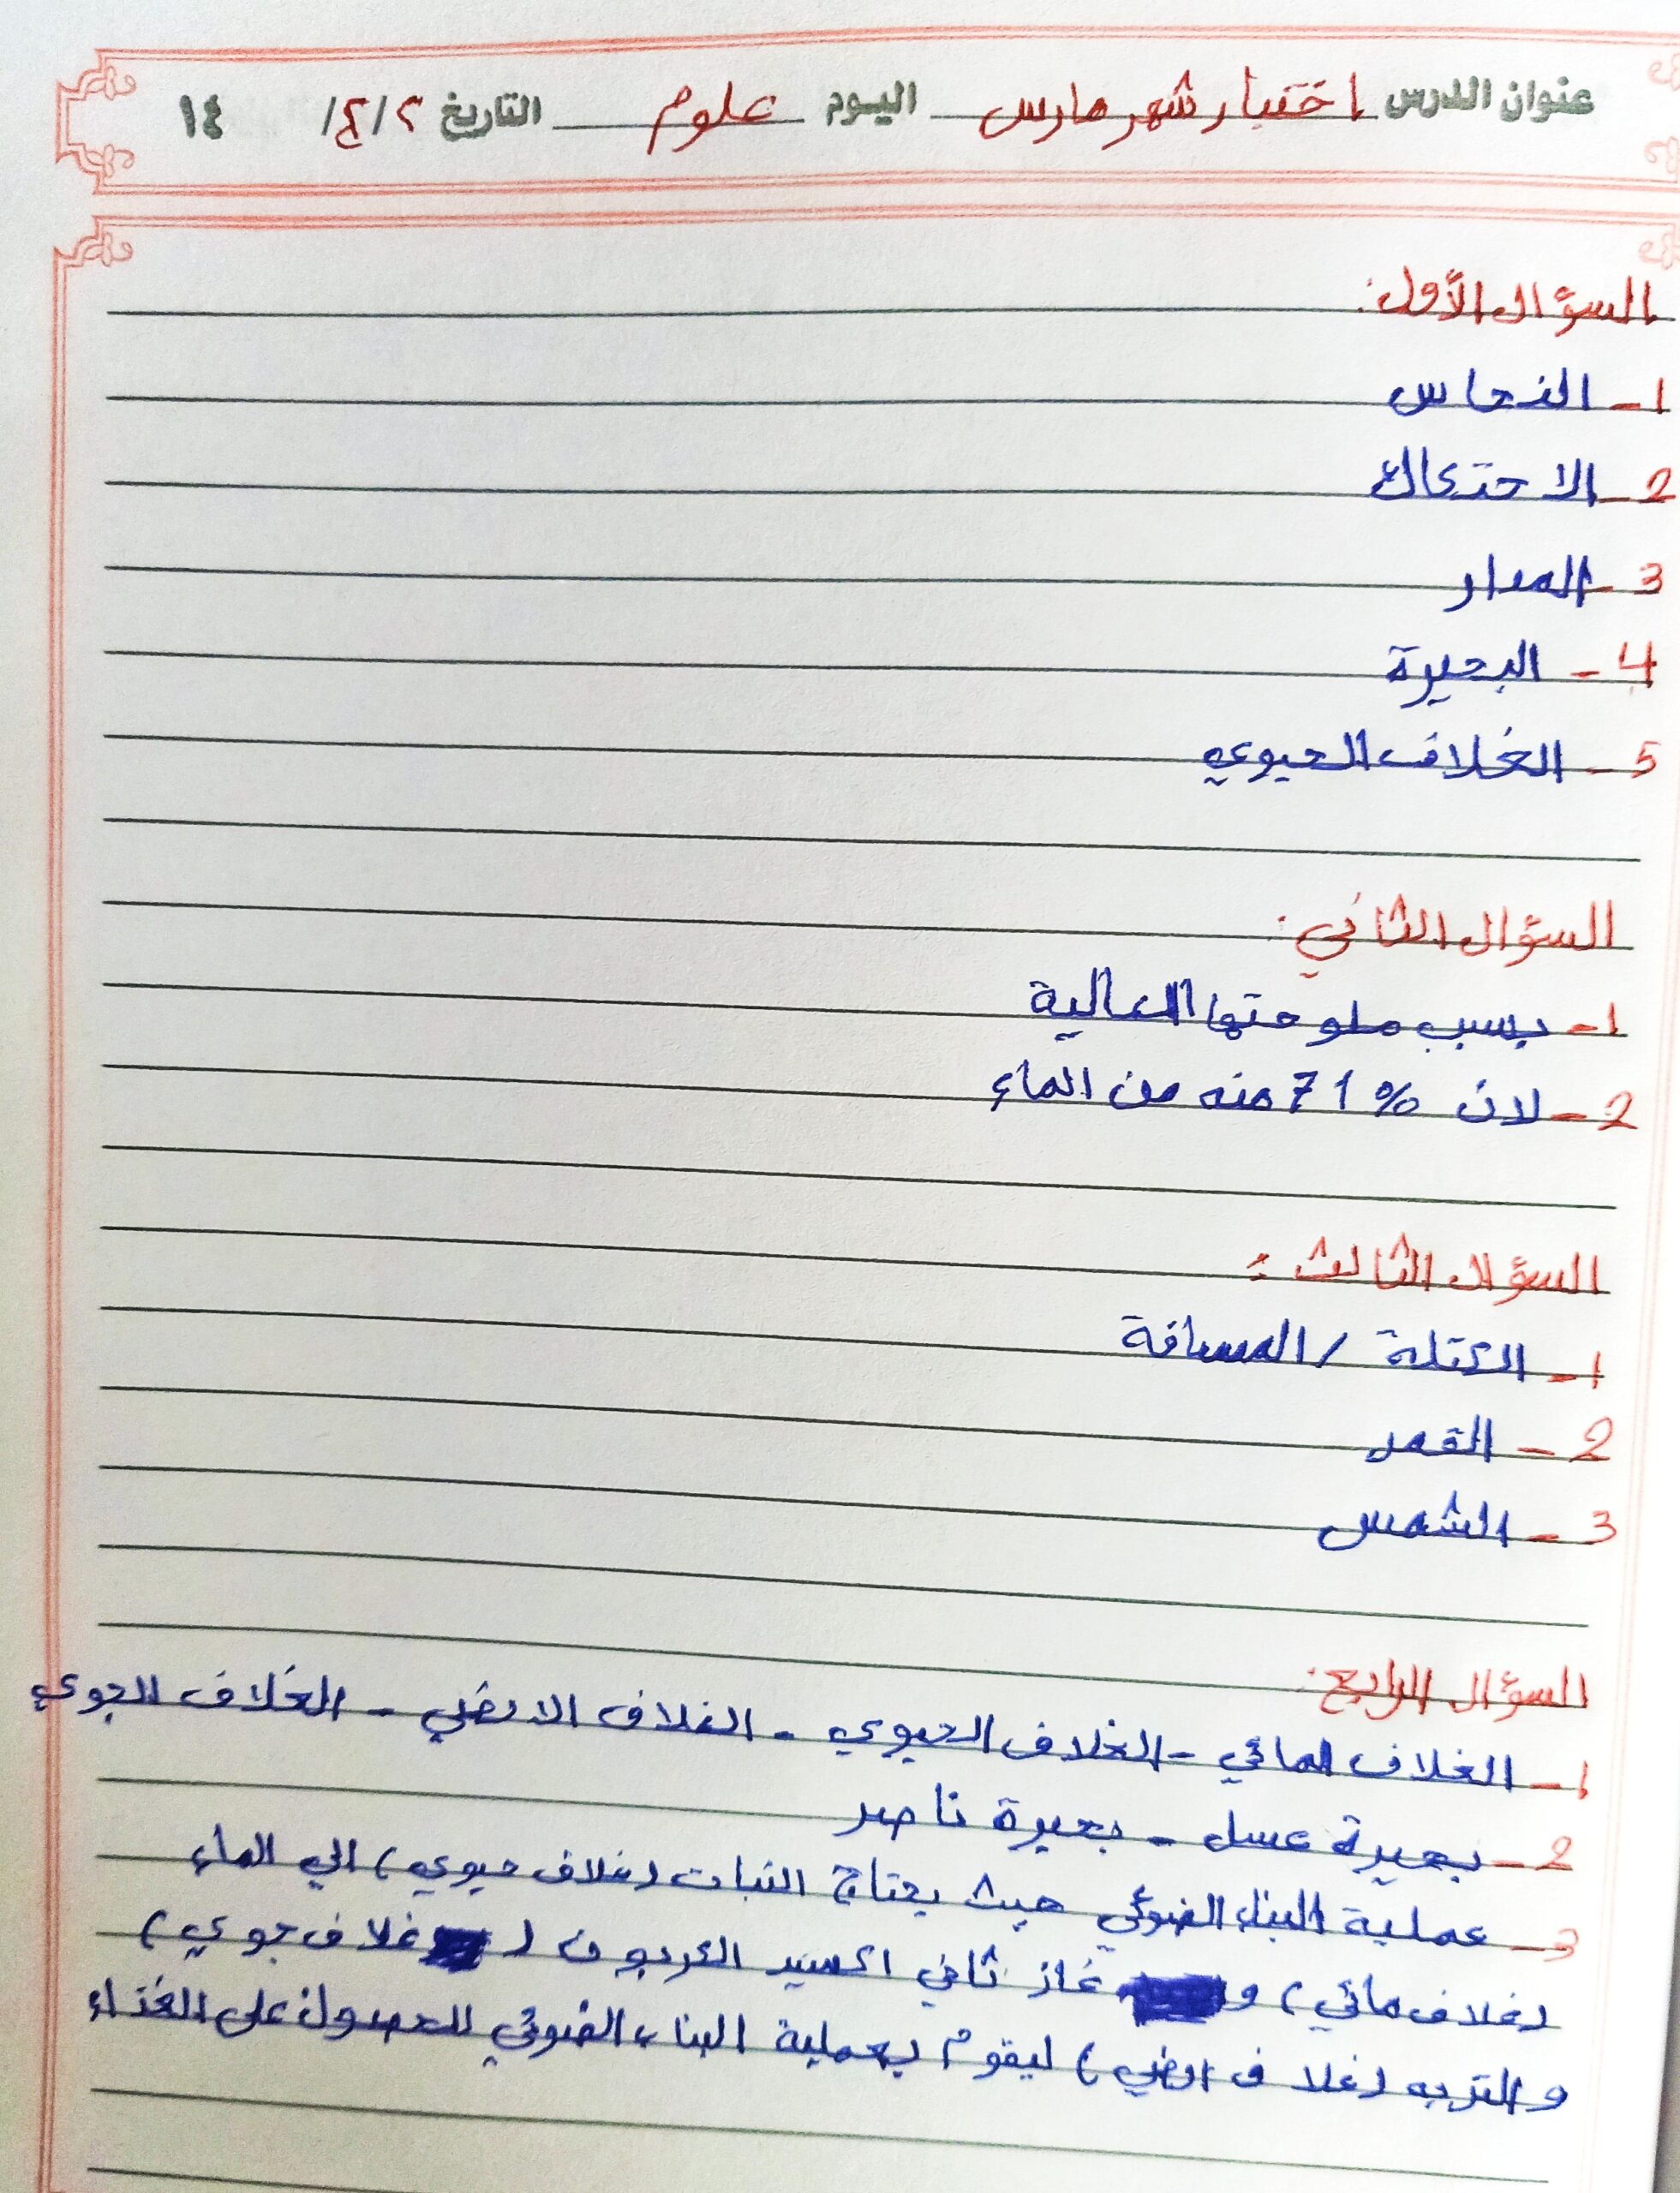 عنوان الدرس اختبار شهر مارس اليوم علوم التاريخ ٢/٤/ ١٤
السؤال الأول:
1- النحاس
2- الاحتكاك
3- المدار
4- البحيرة
5- الغلاف الحيوي
السؤال الثاني:
1- بسبب ملوحتها العالية
2- لان 71% منه من الماء
السؤال الثالث:
1- الكتلة / المسافة
2- القمر
3- الشمس
السؤال الرابع:
1- الغلاف المائي - الغلاف الحيوي - الغلاف الارضي - الغلاف الجوي
2- بحيرة عسل - بحيرة ناصر
3- عملية البناء الضوئي حيث يحتاج النبات (غلاف حيوي) الي الماء
(غلاف مائي) و غاز ثاني اكسيد الكربون (غلاف جوي)
والتربه (غلاف ارضي) ليقوم بعملية البناء الضوئي للحصول على الغذاء